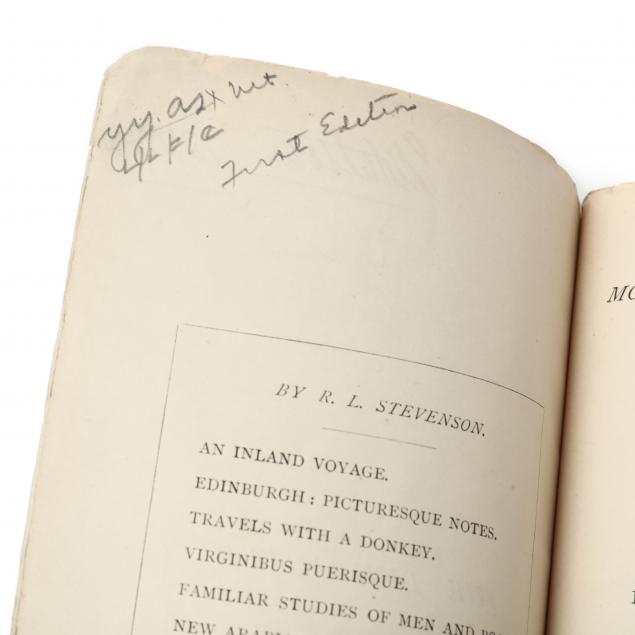 First Edition
BY R. L. STEVENSON.
AN INLAND VOYAGE.
EDINBURGH: PICTURESQUE NOTES.
TRAVELS WITH A DONKEY.
VIRGINIBUS PUERISQUE.
FAMILIAR STUDIES OF MEN AND
NEW